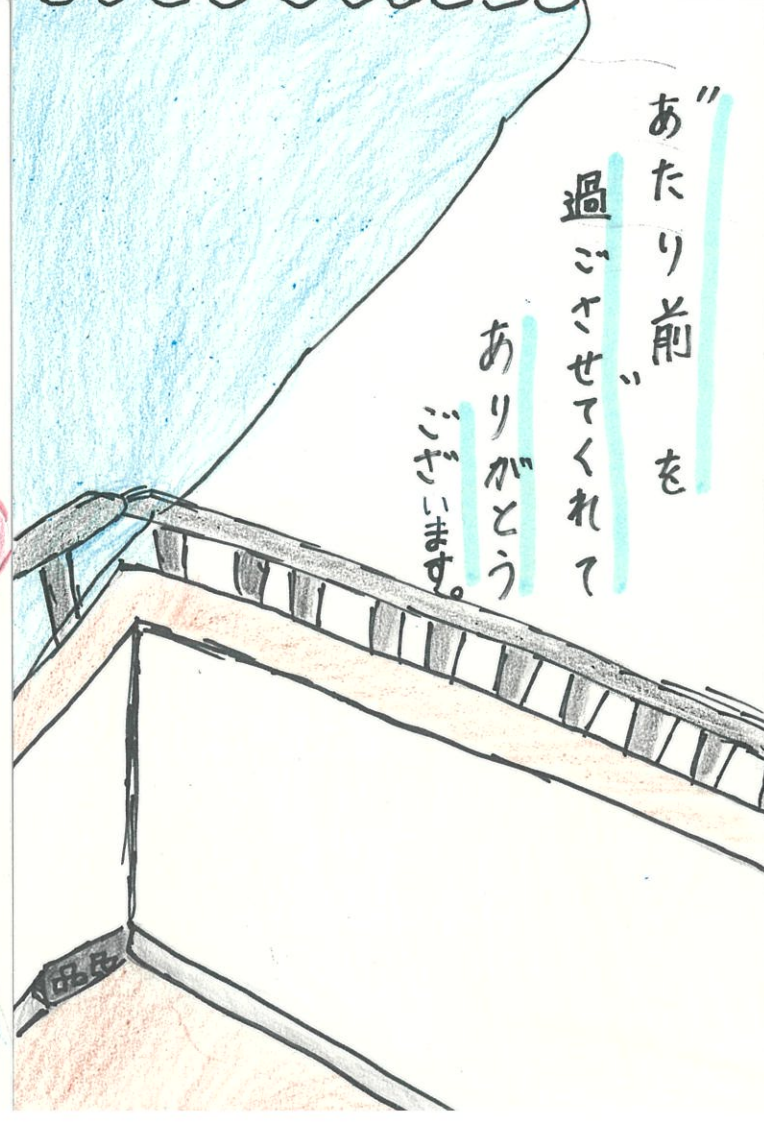 〝あたり前〟を
過ごさせてくれて
ありがとう
ございます。